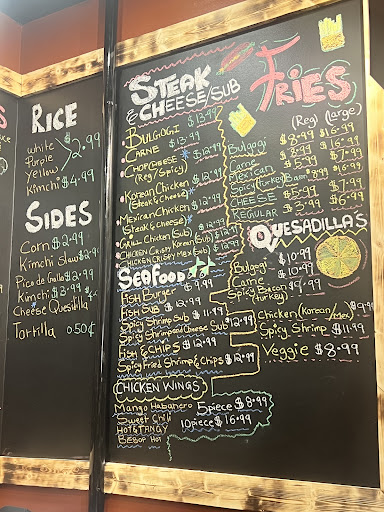 RICE
White
Purple
Yellow
$2.99
Kimchi $4.99
SIDES
Corn $2.99
Kimchi Slaw $2.99
Pica de Gallo $2.99
Kimchi $3.99
Cheese Quesidilla
Tortilla 0.50¢
STEAK
& CHEESE/SUB
BULGOGI $13.99
CARNE $13.99
CHOPCHEESE $12.99
(Reg/Spicy)
Korean Chicken $12.99
(Steak & Cheese)
Mexican Chicken $12.99
(Steak & Cheese)
GRILL Chicken (Sub) $12.99
CHICKEN CRISPY Korean (Sub) $12.99
CHICKEN CRISPY Mex (Sub) $12.99
SEAFOOD
FISH BURGER $9.99
FISH SUB $11.99
Spicy Shrimp Sub $11.99
Spicy Shrimp and Cheese Sub $12.99
FISH & CHIPS $12.99
Spicy Fried Shrimp & Chips $12.99
CHICKEN WINGS
Mango Habanero
Sweet Chili
HOT & TANGY
BEBOP Hot
5 piece $8.99
10 piece $16.99
FRIES
(Reg) (Large)
Bulgogi $8.99 $16.99
Carne $8.99 $16.99
Mexican $5.99 $7.99
Spicy (Turkey) Bacon $8.99 $16.99
CHEESE $5.99 $7.99
REGULAR $3.99 $6.99
QUESADILLA'S
Bulgogi $10.99
Carne $10.99
Spicy Bacon $9.99
(Turkey)
Chicken (Korean/Mex) $9.99
Spicy Shrimp $11.99
Veggie $8.99